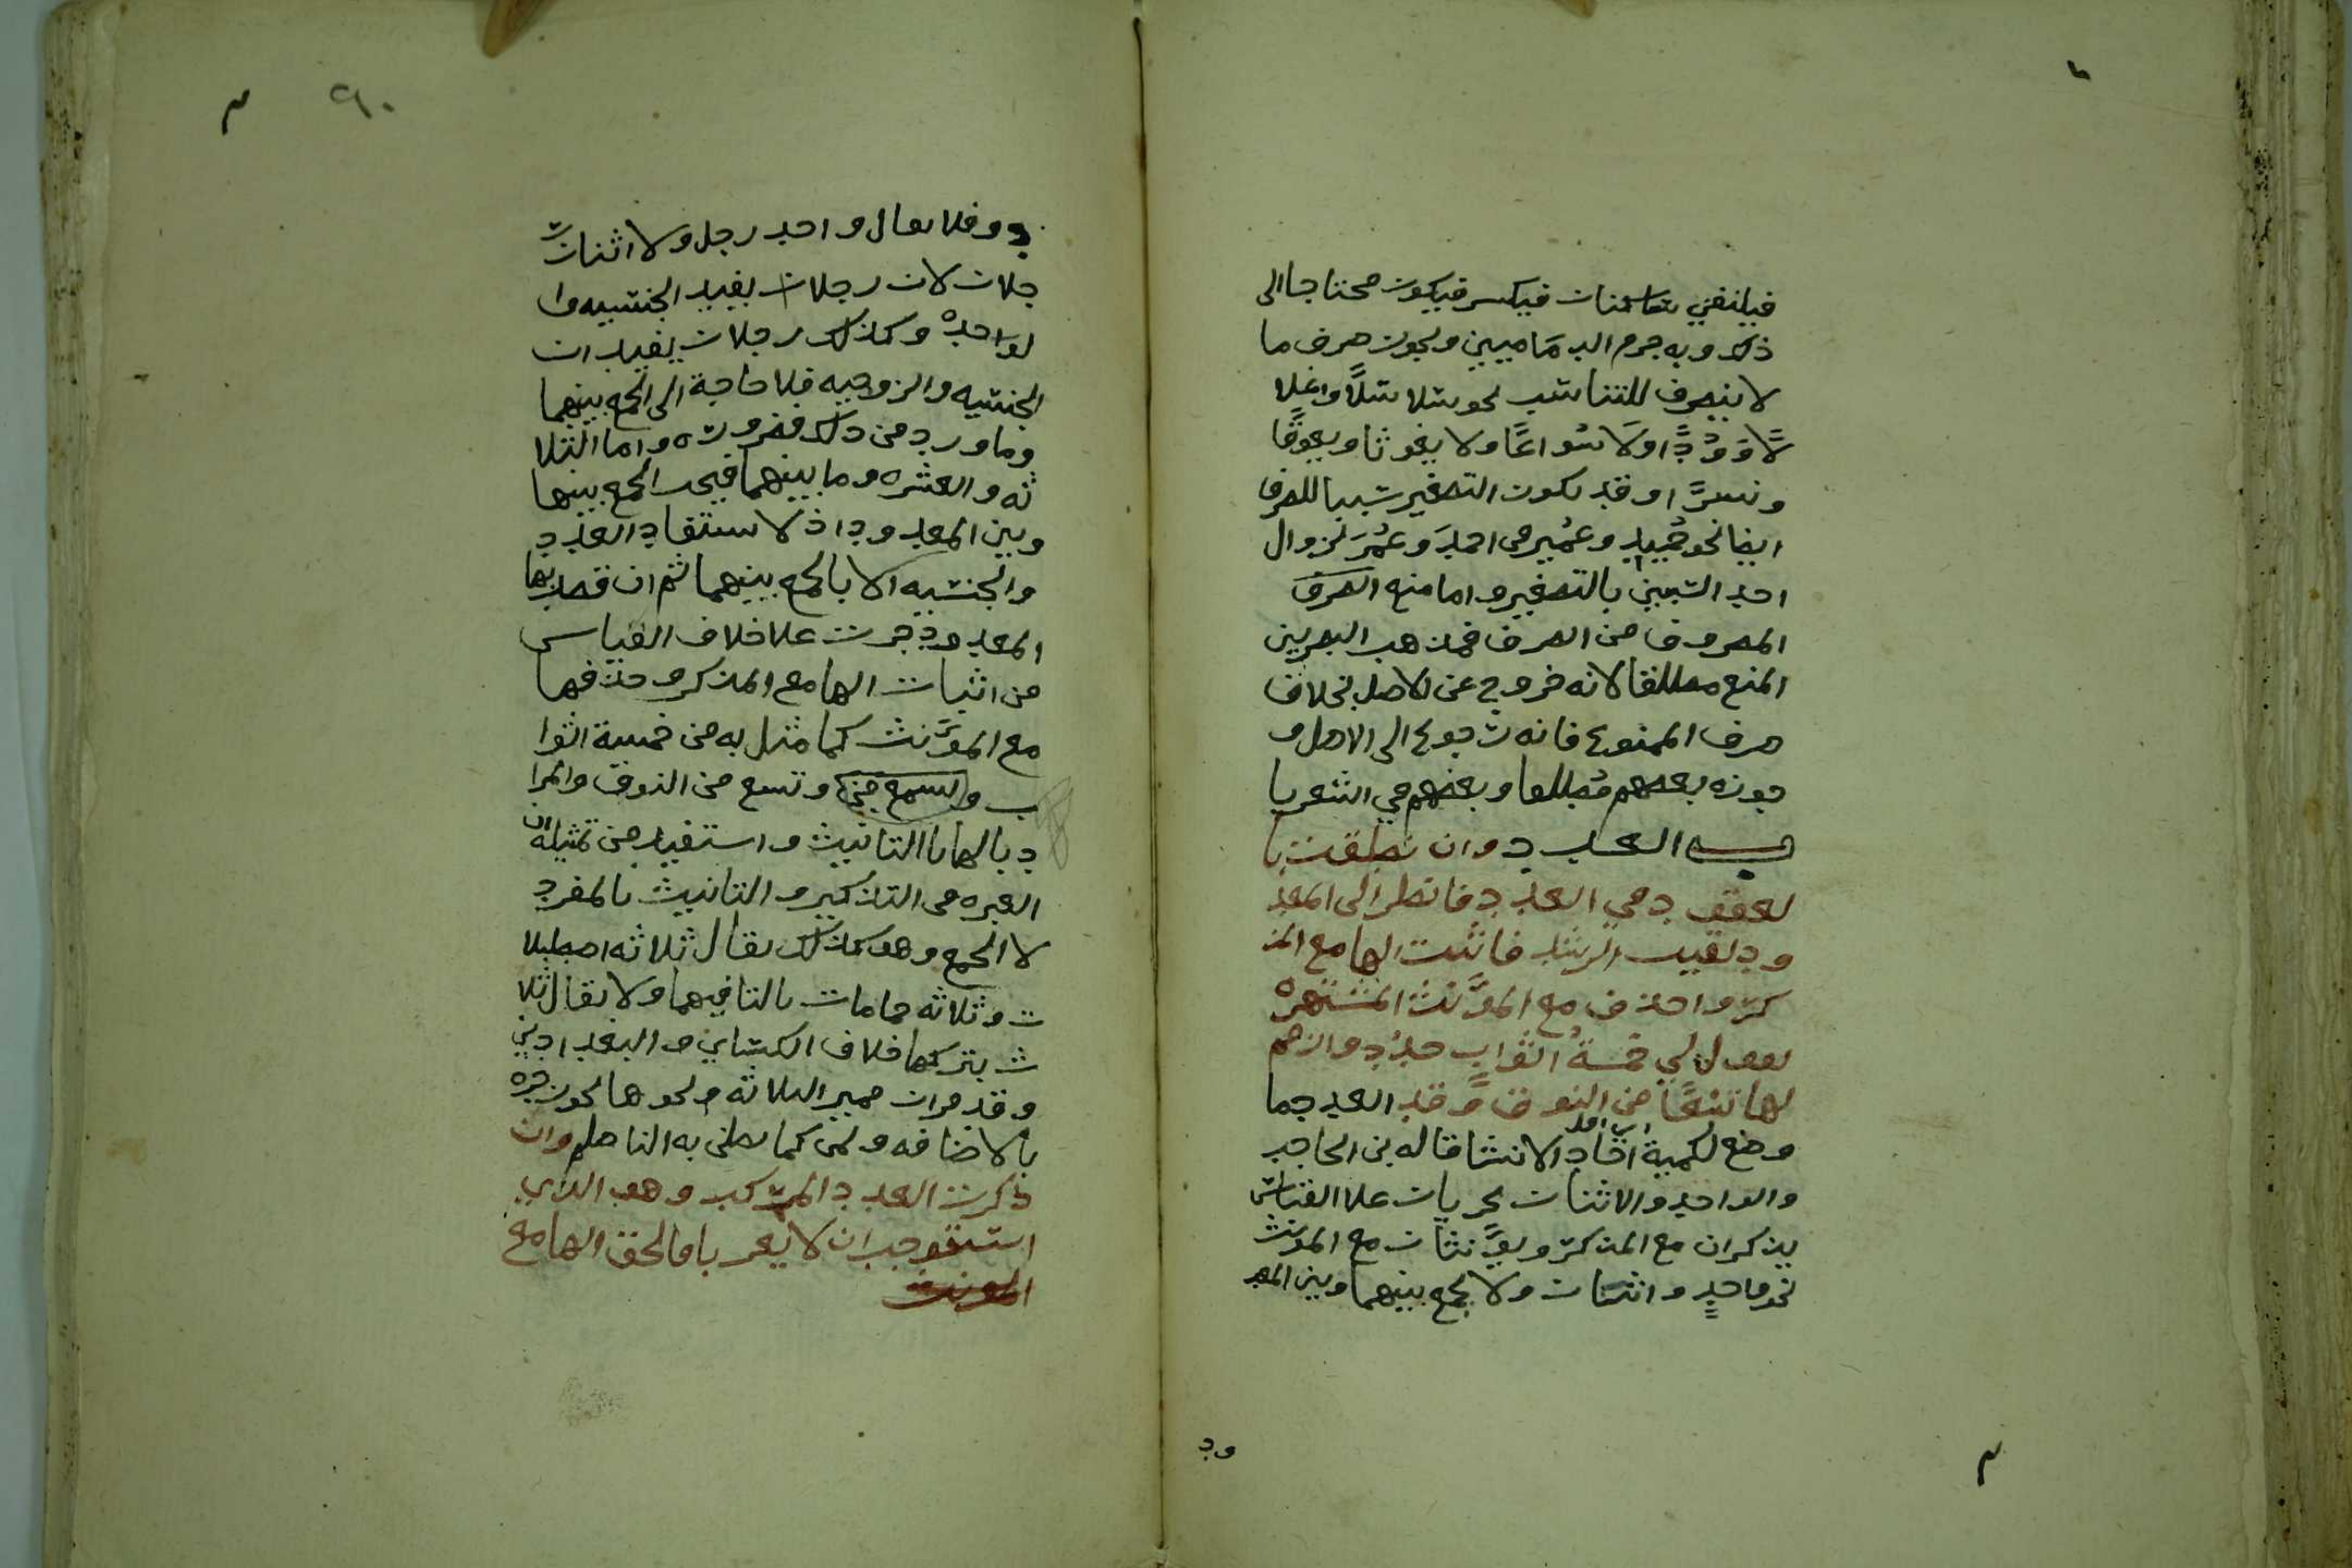 فيلتقي ساكنان فيكسر فيكون محتاجا الى
ذلك وبه جزم الدماميني ويجوز صرف ما
لا ينصرف للتناسب نحو سلاسلًا واغلا
لًا وَوُدًّا ولا سُواعًا ولا يغوثا ويعوقًا
ونسرًا وقد يكون التصغير سببا للصرف
ايضا نحو حُمَيد وعُمَير في احمدَ وعُمَرَ لزوال
احد السببين بالتصغير واما منع الصرف
المصروف من الصرف فمذهب البصريين
المنع مطلقا لانه خروج عن الاصل بخلاف
صرف الممنوع فانه رجوع الى الاصل و
جوزه بعضهم مُطلقا وبعضهم في الشعر با
ب العدد وان نطقت با
لعقود في العدد فانظر الى المعد
ود لقيت الرشد فاثبت الها مع المذ
كر واحذف مع المؤنث المشتهره
تقول لي خمسةُ اثواب جدُد وازمم
لها تسعًا من النوق وَقُد العدد ما
وضع لكمية آحاد الاشيا قاله بن الحاجب
والواحد والاثنان يجريان على القياس
يذكران مع المذكر ويؤنثان مع المؤنث
نحو واحدٍ واثنان ولا يجمع بينهما وبين المعد
ود
٩٠
ود فلا يقال واحد رجل ولا اثنان ر
جلان لان رجلان يفيد الجنسيه وا
لواحده وكذلك رجلان يفيد ان
الجنسيه والزوجيه فلا حاجة الى الجمع بينهما
وما ورد من ذلك فضروره واما الثلا
ثه والعشره وما بينهما فيجب الجمع بينها
وبين المعدود اذ لا يستفاد العدد
والجنسيه الا بالجمع بينهما ثم ان قصد بها
المعدود جرت علا خلاف القياس
من اثبات الها مع المذكر وحذفها
مع المؤنث كما مثل به من خمسة اثوا
ب وتسع من النوق والمرا
د بالها تا التانيث واستفيد من تمثيله ان
العبره في التذكير والتانيث بالمفرد
لا الجمع وهو كذلك يقال ثلاثه اصطبلا
ت وثلاثه حمامات بالتا فيهما ولا يقال ثلا
ث بتركها خلاف الكسائي والبغداديين
وقد مر ان مميز الثلاثه ونحوها يجوز جره
بالاضافه وبمن كما نطق به الناظم وان
ذكرت العدد المركب وهو الذي
استوجب ان لا يعربا فالحق الها مع
المونث